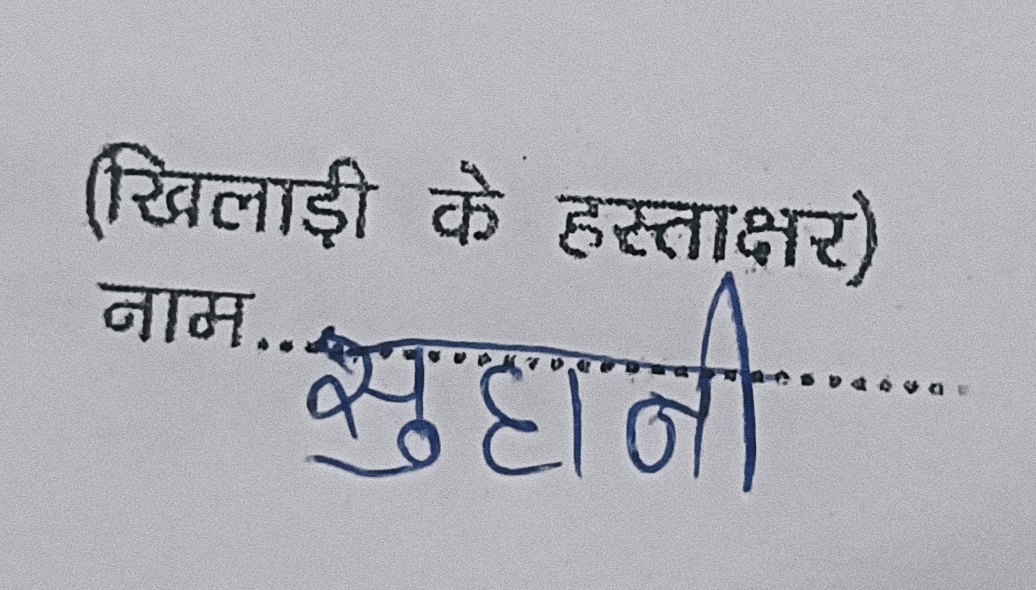 (खिलाड़ी के हस्ताक्षर)
नाम.............................. सुहानी